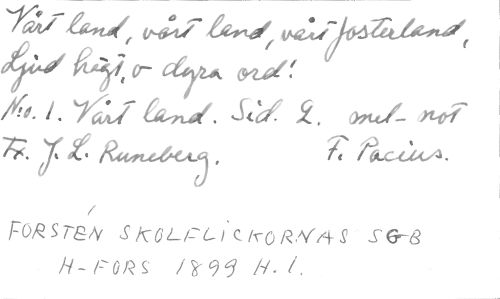 Vårt land, vårt land, vårt fosterland,
Ljud högt, o dyra ord!
N:o. 1. Vårt land. Sid. 2. mel-not
Tx. J. L. Runeberg. F. Pacius.
FORSTÉN SKOLFLICKORNAS SGB
H-FORS 1899 H. 1.